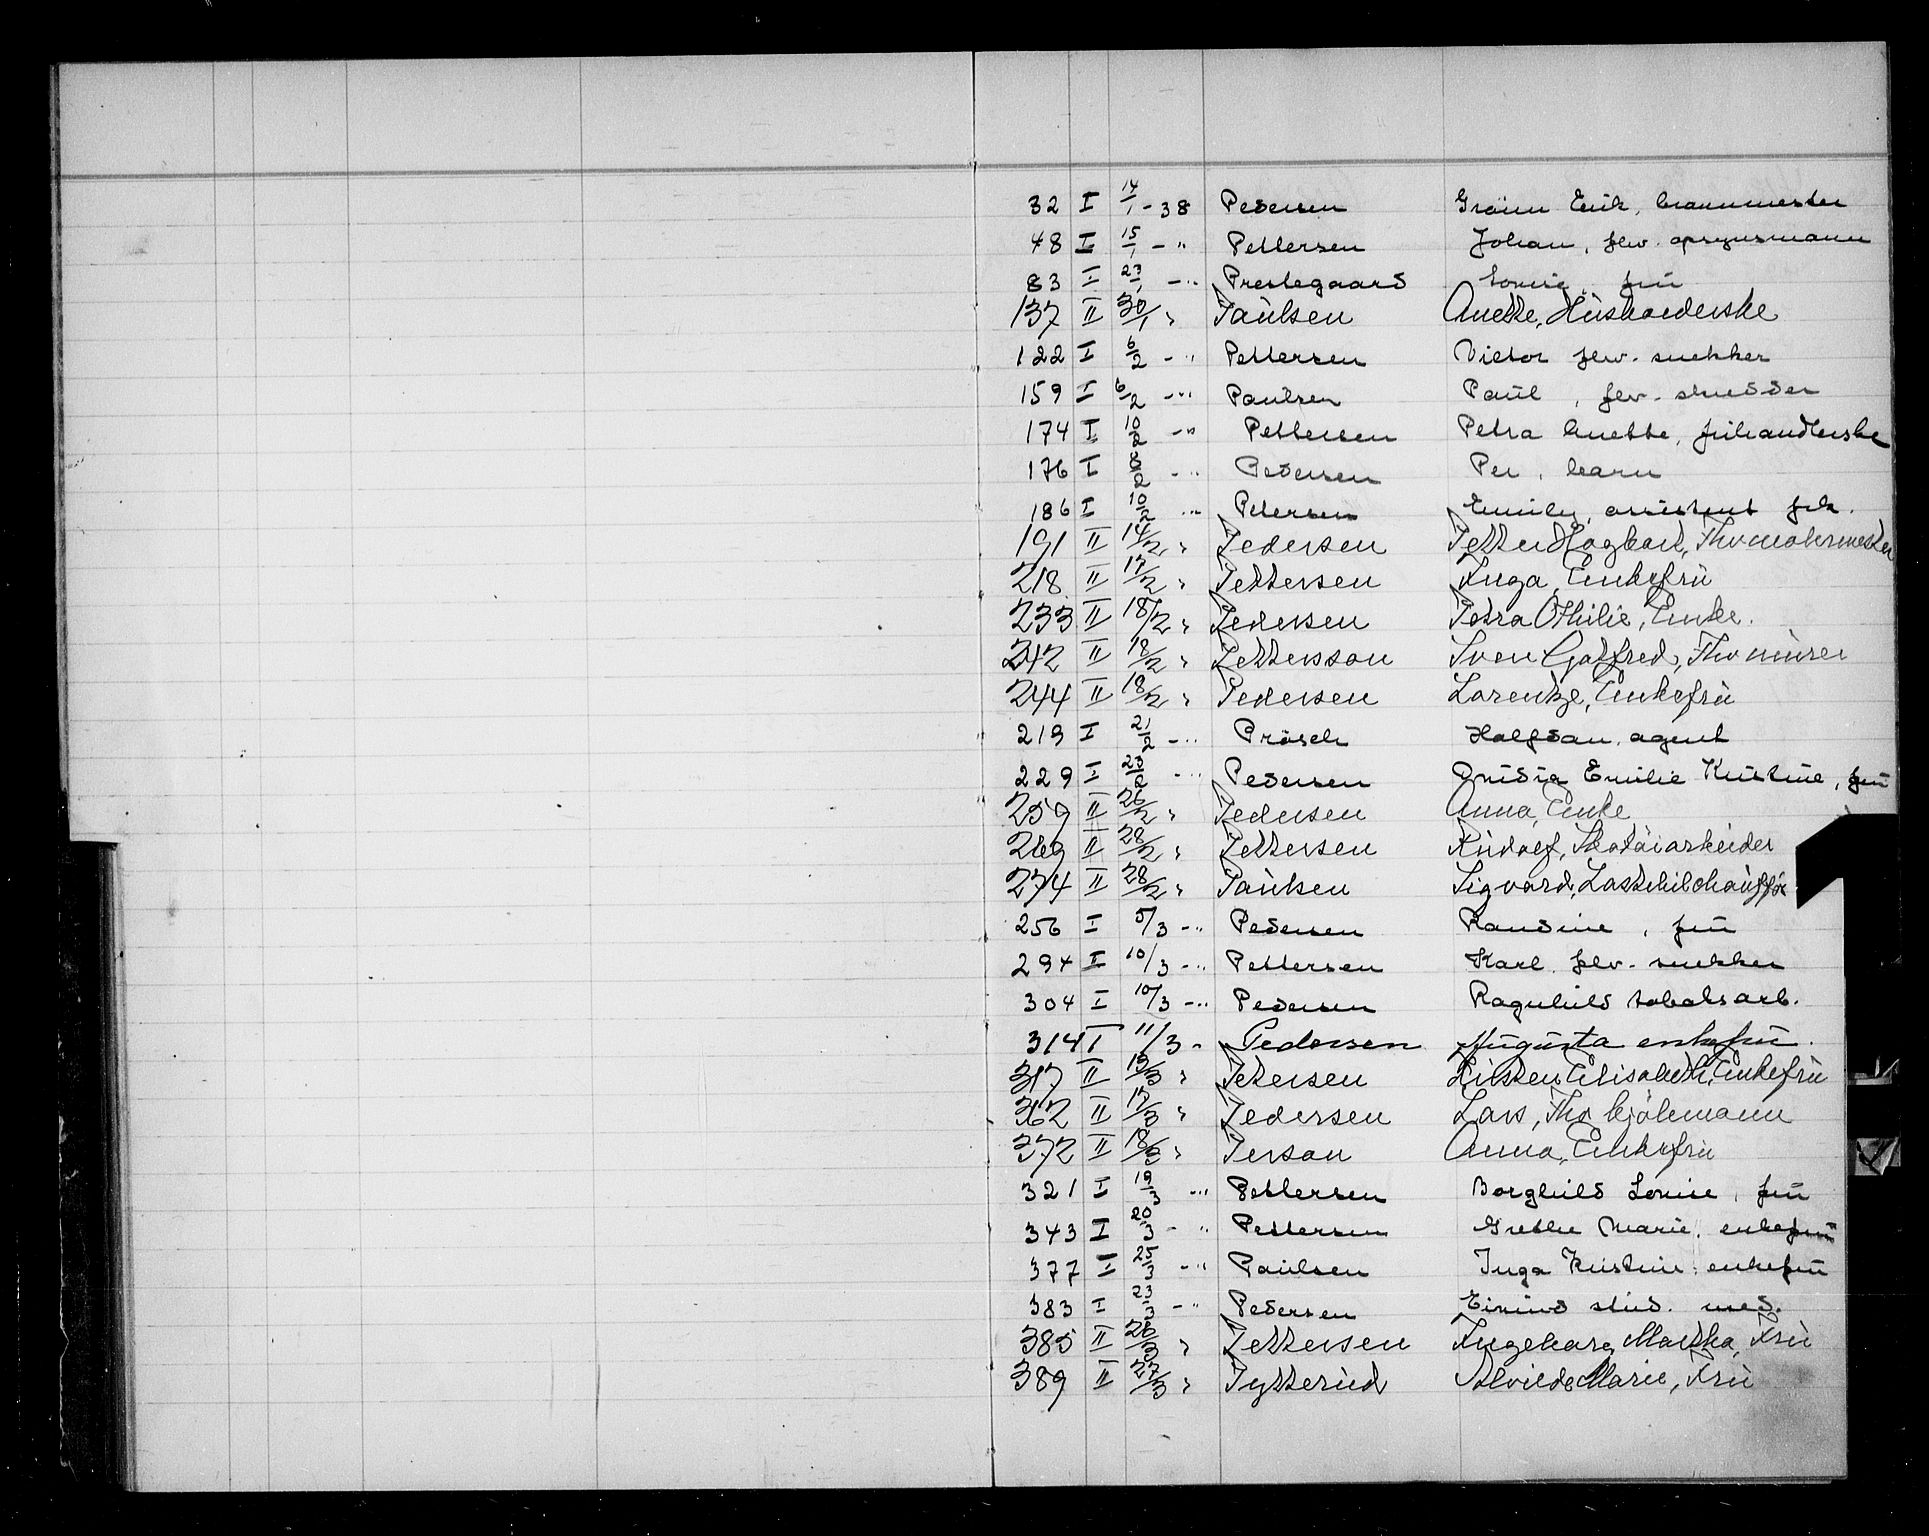 32 I 14/1 - 38 Pedersen Gröнn Erik, brannmester
48 I 15/1 - " Pettersen Johan, flv. opsynsmann
83 I 23/1 - " Prestegaard Louise, frü
137 II 30/1 " Paulsen Anette, Hüsholderske
122 I 6/2 - " Pettersen Victor flv. snekker
159 I 6/2 - " Paulsen Paül, flv. skredder
174 I 10/2 - " Pettersen Petra Anette, frühandlerske
176 I 8/2 - " Pedersen Per, barn
186 I 10/2 - " Petersen Emily, assistent frk.
191 II 14/2 " Pedersen Petter Hagbart, Fhv.
218 II 17/2 " Pettersen Inga, Enkefrü
233 II 18/2 " Pedersen Petra Othilie, Enke.
242 II 18/2 " Pettersson Sven Gotfred, Fhv mürer
244 II 18/2 " Pedersen Lorentze, Enkefrü
219 I 21/2 - " Prösch Halfdan, agent
229 I 23/2 - " Pedersen Ovidia Emilie Kristine, frü
259 II 26/2 " Pedersen Anna, Enke
269 II 28/2 " Pettersen Rüdolf, Skotöiarbeider
274 II 28/2 " Paülsen Sigvard, Lastebilchaüfför
256 I 5/3 - " Pedersen Randine, frü
294 I 10/3 - " Pettersen Karl flv. snekker
304 I 10/3 - " Pedersen Ragnhild tobaksarb.
314 I 11/3 - Pedersen Augusta enkefrü.
317 II 13/3 " Petersen Kirsten Elisabeth, Enkefrü
362 II 17/3 " Pedersen Lars, Fhv bjölemann
372 II 18/3 " Person Anna, Enkefrü
321 I 19/3 - " Pettersen Borghild Louise, frü
343 I 20/3 - " Pettersen Grethe Marie, enkefrü
377 I 25/3 - " Paülsen Inga Kristine, enkefrü
383 I 23/3 - " Pedersen Eivind stüd. med.
385 II 26/3 " Pettersen Ingeborg Martha, Frü
389 II 27/3 " Pytterüd Alvilde Marie, Frü